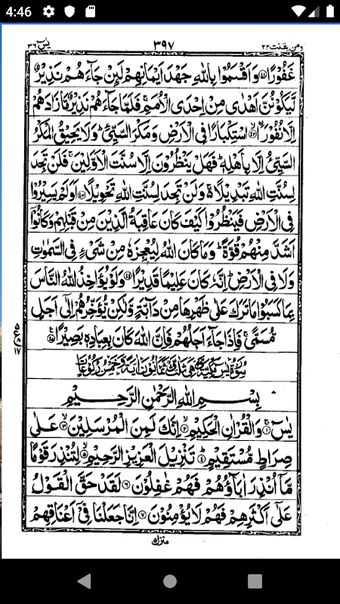 4:46
ومن یقنت ٢٢ ٣٩٧ یٰسٓ ٣٦
غَفُوْرًا وَاَقْسَمُوْا بِاللّٰهِ جَهْدَ اَيْمَانِهِمْ لَئِنْ جَآءَهُمْ نَذِيْرٌ
لَّيَكُوْنُنَّ اَهْدٰى مِنْ اِحْدَى الْاُمَمِ فَلَمَّا جَآءَهُمْ نَذِيْرٌ مَّا زَادَهُمْ
اِلَّا نُفُوْرًا اسْتِكْبَارًا فِى الْاَرْضِ وَمَكْرَ السَّيِّئِ وَلَا يَحِيْقُ الْمَكْرُ
السَّيِّئُ اِلَّا بِاَهْلِهٖ فَهَلْ يَنْظُرُوْنَ اِلَّا سُنَّتَ الْاَوَّلِيْنَ فَلَنْ تَجِدَ
لِسُنَّتِ اللّٰهِ تَبْدِيْلًا وَلَنْ تَجِدَ لِسُنَّتِ اللّٰهِ تَحْوِيْلًا اَوَلَمْ يَسِيْرُوْا
فِى الْاَرْضِ فَيَنْظُرُوْا كَيْفَ كَانَ عَاقِبَةُ الَّذِيْنَ مِنْ قَبْلِهِمْ وَكَانُوْٓا
اَشَدَّ مِنْهُمْ قُوَّةً وَمَا كَانَ اللّٰهُ لِيُعْجِزَهٗ مِنْ شَىْءٍ فِى السَّمٰوٰتِ
وَلَا فِى الْاَرْضِ اِنَّهٗ كَانَ عَلِيْمًا قَدِيْرًا وَلَوْ يُؤَاخِذُ اللّٰهُ النَّاسَ
بِمَا كَسَبُوْا مَا تَرَكَ عَلٰى ظَهْرِهَا مِنْ دَآبَّةٍ وَّلٰكِنْ يُّؤَخِّرُهُمْ اِلٰٓى اَجَلٍ
مُّسَمًّى فَاِذَا جَآءَ اَجَلُهُمْ فَاِنَّ اللّٰهَ كَانَ بِعِبَادِهٖ بَصِيْرًا
بِسْمِ اللّٰهِ الرَّحْمٰنِ الرَّحِيْمِ
يٰسٓ وَالْقُرْاٰنِ الْحَكِيْمِ اِنَّكَ لَمِنَ الْمُرْسَلِيْنَ عَلٰى
صِرَاطٍ مُّسْتَقِيْمٍ تَنْزِيْلَ الْعَزِيْزِ الرَّحِيْمِ لِتُنْذِرَ قَوْمًا
مَّآ اُنْذِرَ اٰبَآؤُهُمْ فَهُمْ غٰفِلُوْنَ لَقَدْ حَقَّ الْقَوْلُ
عَلٰٓى اَكْثَرِهِمْ فَهُمْ لَا يُؤْمِنُوْنَ اِنَّا جَعَلْنَا فِىْٓ اَعْنَاقِهِمْ